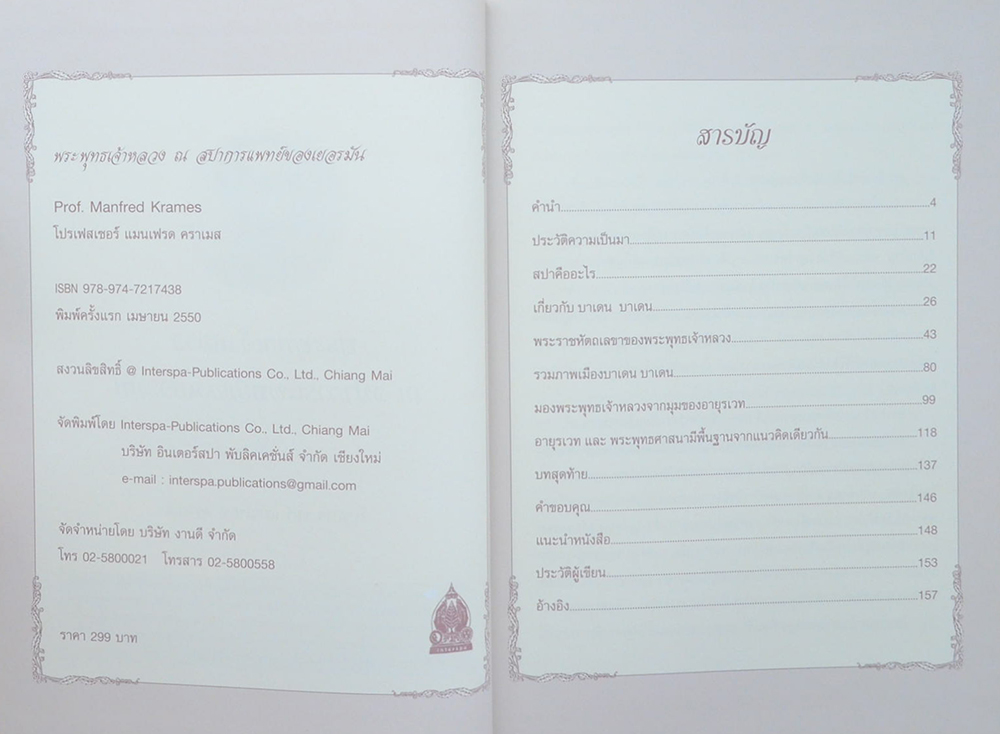 พระพุทธเจ้าหลวง ณ สปาการแพทย์ของเยอรมัน
Prof. Manfred Krames
โปรเฟสเซอร์ แมนเฟรด คราเมส
ISBN 978-974-7217438
พิมพ์ครั้งแรก เมษายน 2550
สงวนลิขสิทธิ์ @ Interspa-Publications Co., Ltd., Chiang Mai
จัดพิมพ์โดย Interspa-Publications Co., Ltd., Chiang Mai
บริษัท อินเตอร์สปา พับลิคเคชั่นส์ จำกัด เชียงใหม่
e-mail : interspa.publications@gmail.com
จัดจำหน่ายโดย บริษัท งานดี จำกัด
โทร 02-5800021 โทรสาร 02-5800558
ราคา 299 บาท
สารบัญ
คำนำ 4
ประวัติความเป็นมา 11
สปาคืออะไร 22
เกี่ยวกับ บาเดน บาเดน 26
พระราชหัตถเลขาของพระพุทธเจ้าหลวง 43
รวมภาพเมืองบาเดน บาเดน 80
มองพระพุทธเจ้าหลวงจากมุมของอายุรเวท 99
อายุรเวท และ พระพุทธศาสนามีพื้นฐานจากแนวคิดเดียวกัน 118
บทสุดท้าย 137
คำขอบคุณ 146
แนะนำหนังสือ 148
ประวัติผู้เขียน 153
อ้างอิง 157